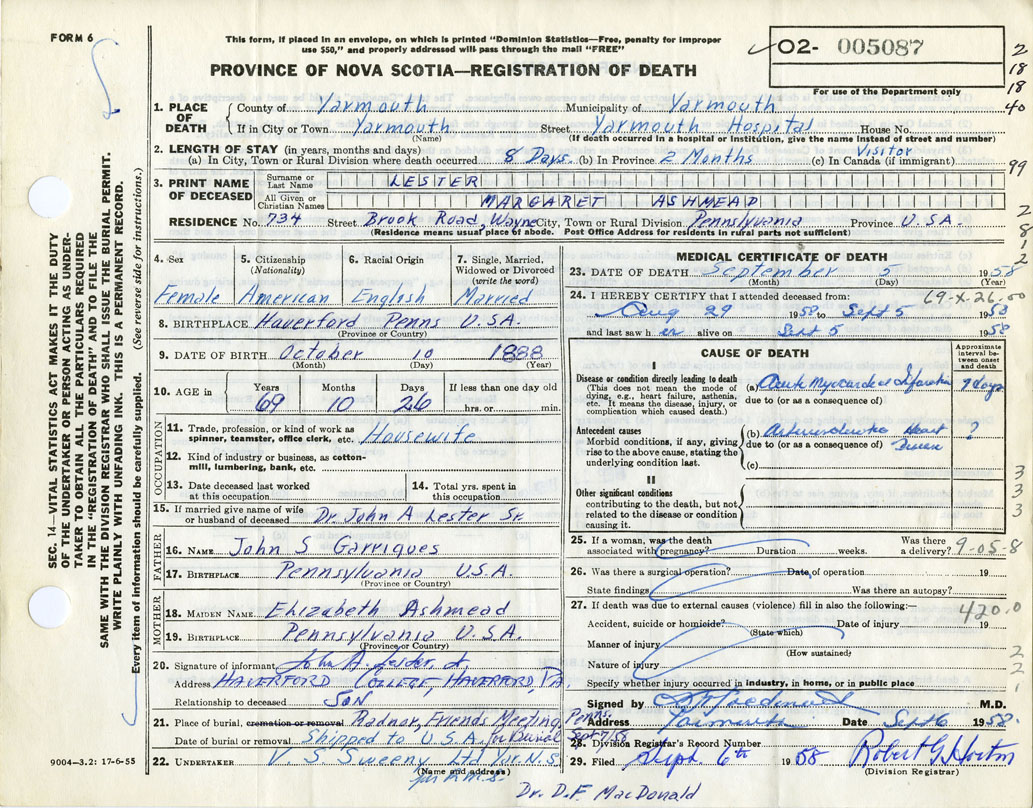 FORM 6
This form, if placed in an envelope, on which is printed "Dominion Statistics—Free, penalty for improper
use $50," and properly addressed will pass through the mail "FREE"
✓ O2- 005087
PROVINCE OF NOVA SCOTIA—REGISTRATION OF DEATH
For use of the Department only
2
18
18
40
99
2
8
1
2
SEC. 14—VITAL STATISTICS ACT MAKES IT THE DUTY
OF THE UNDERTAKER OR PERSON ACTING AS UNDER-
TAKER TO OBTAIN ALL THE PARTICULARS REQUIRED
IN THE "REGISTRATION OF DEATH" AND TO FILE THE
SAME WITH THE DIVISION REGISTRAR WHO SHALL ISSUE THE BURIAL PERMIT.
WRITE PLAINLY WITH UNFADING INK. THIS IS A PERMANENT RECORD.
Every item of information should be carefully supplied. (See reverse side for instructions.)
1. PLACE OF DEATH County of Yarmouth Municipality of Yarmouth
If in City or Town Yarmouth Street Yarmouth Hospital House No.
(Name) (If death occurred in a hospital or institution, give the name instead of street and number)
2. LENGTH OF STAY (in years, months and days) Visitor
(a) In City, Town or Rural Division where death occurred 8 Days (b) In Province 2 Months (c) In Canada (if immigrant)
3. PRINT NAME OF DECEASED Surname or Last Name LESTER
All Given or Christian Names MARGARET ASHMEAD
RESIDENCE No. 734 Street Brook Road, Wayne City, Town or Rural Division Pennsylvania Province U.S.A.
(Residence means usual place of abode. Post Office Address for residents in rural parts not sufficient)
4. Sex 5. Citizenship (Nationality) 6. Racial Origin 7. Single, Married, Widowed or Divorced (write the word)
Female American English Married
8. BIRTHPLACE Haverford Penns U.S.A.
(Province or Country)
9. DATE OF BIRTH October 10 1888
(Month) (Day) (Year)
10. AGE in Years 69 Months 10 Days 26 If less than one day old
hrs. or min.
OCCUPATION
11. Trade, profession, or kind of work as
spinner, teamster, office clerk, etc. Housewife
12. Kind of industry or business, as cotton-
mill, lumbering, bank, etc.
13. Date deceased last worked at this occupation 14. Total yrs. spent in this occupation
15. If married give name of wife
or husband of deceased Dr. John A Lester Sr.
FATHER
16. NAME John S Garrigues
17. BIRTHPLACE Pennsylvania U.S.A.
(Province or Country)
MOTHER
18. MAIDEN NAME Elizabeth Ashmead
19. BIRTHPLACE Pennsylvania U.S.A.
(Province or Country)
20. Signature of informant John A. Lester, Jr
Address HAVERFORD COLLEGE, HAVERFORD, PA
Relationship to deceased SON
21. Place of burial, cremation or removal Radnor, Friends Meeting, Penns.
Date of burial or removal Shipped to U.S.A. for Burial Sept 7/58
22. UNDERTAKER V. S. Sweeny Ltd Yar. N.S.
(Name and address)
9004—3.2: 17-6-55
MEDICAL CERTIFICATE OF DEATH
23. DATE OF DEATH September 5 1958
(Month) (Day) (Year)
69-X-26.00
24. I HEREBY CERTIFY that I attended deceased from:
Aug 29 1958 to Sept 5 1958
and last saw her alive on Sept 5 1958
CAUSE OF DEATH
Approximate interval between onset and death
I
Disease or condition directly leading to death
(This does not mean the mode of
dying, e.g., heart failure, asthenia,
etc. It means the disease, injury, or
complication which caused death.)
(a) Acute Myocardial Infarction 7 days
due to (or as a consequence of)
Antecedent causes
Morbid conditions, if any, giving
rise to the above cause, stating the
underlying condition last.
(b) Arteriosclerotic Heart Disease ?
due to (or as a consequence of)
(c)
II
Other significant conditions
contributing to the death, but not
related to the disease or condition
causing it.
3
3
3
25. If a woman, was the death Was there
associated with pregnancy? Duration weeks. a delivery? 9-05-8
26. Was there a surgical operation? Date of operation 19
State findings Was there an autopsy?
27. If death was due to external causes (violence) fill in also the following:—
420.0
Accident, suicide or homicide? Date of injury 19
(State which)
Manner of injury
(How sustained)
Nature of injury
Specify whether injury occurred in industry, in home, or in public place
2
2
1
Signed by M.D.
Address Yarmouth Date Sept 6 1958.
28. Division Registrar's Record Number
29. Filed Sept. 6th 1958 Robert G Horton
(Division Registrar)
Dr. D.F. MacDonald